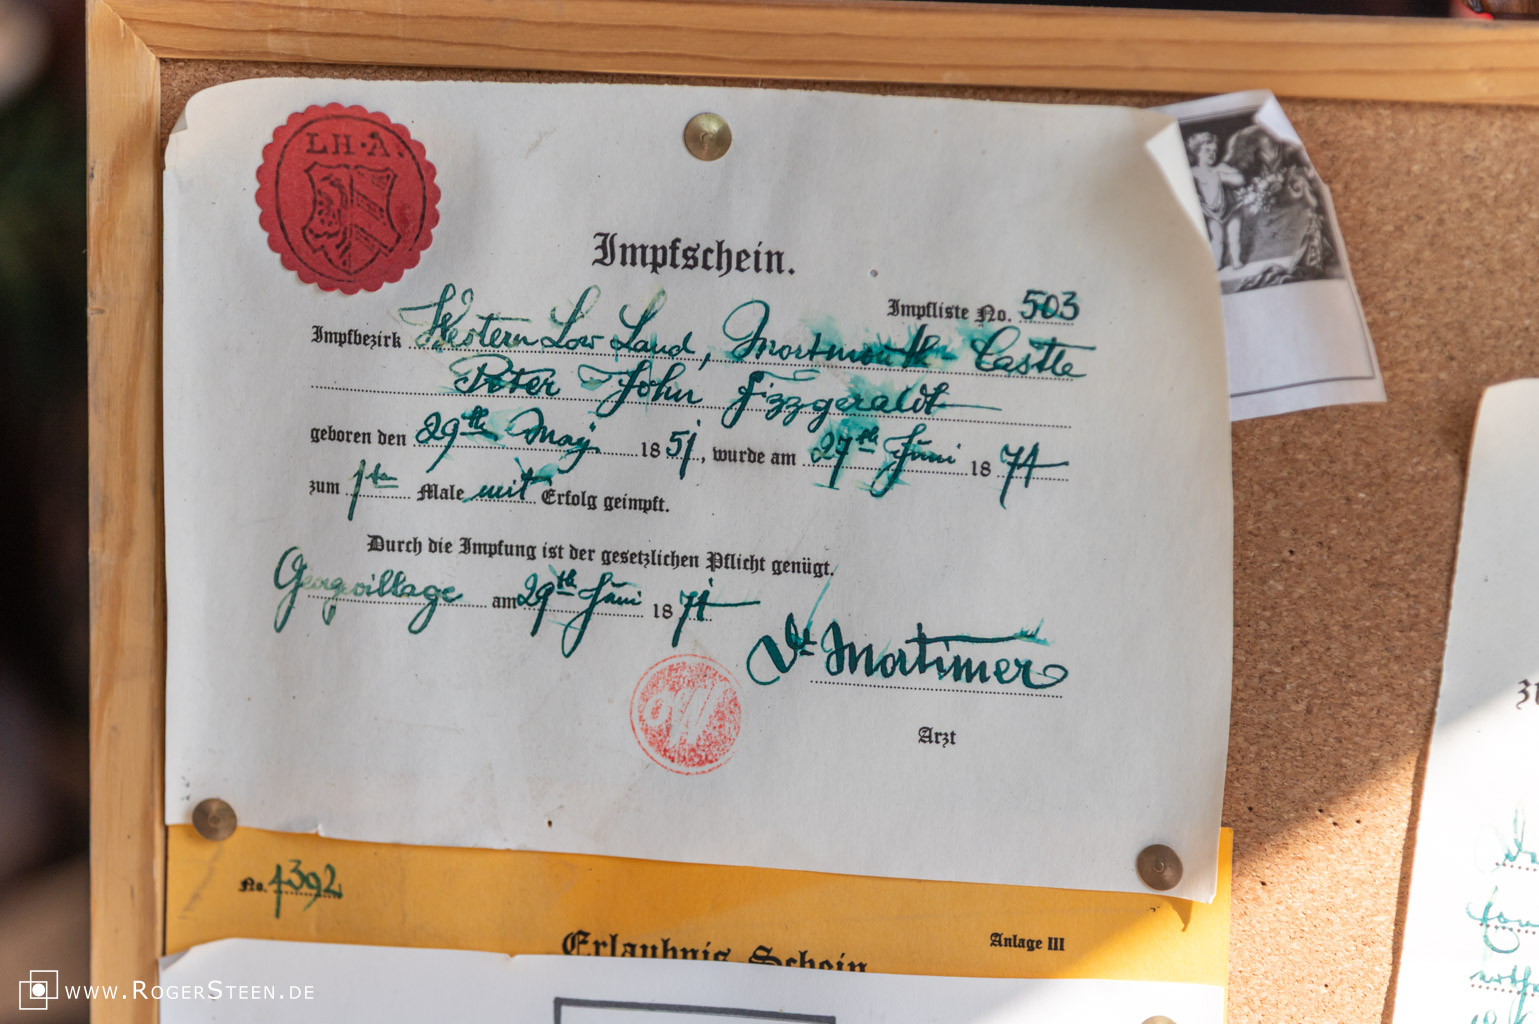 L.H.A.
Impfschein.
Impfliste No. 503
Impfbezirk Western Low Land, Mortmouth Castle
Peter John Fizzgeraldt
geboren den 29th May 1851, wurde am 27th Juni 1874
zum 1ten Male mit Erfolg geimpft.
Durch die Impfung ist der gesetzlichen Pflicht genügt.
am 29th Juni 1874
Dr. Mortimer
Arzt
No. 1392
Anlage III
Erlaubnis Schein
www.RogerSteen.de